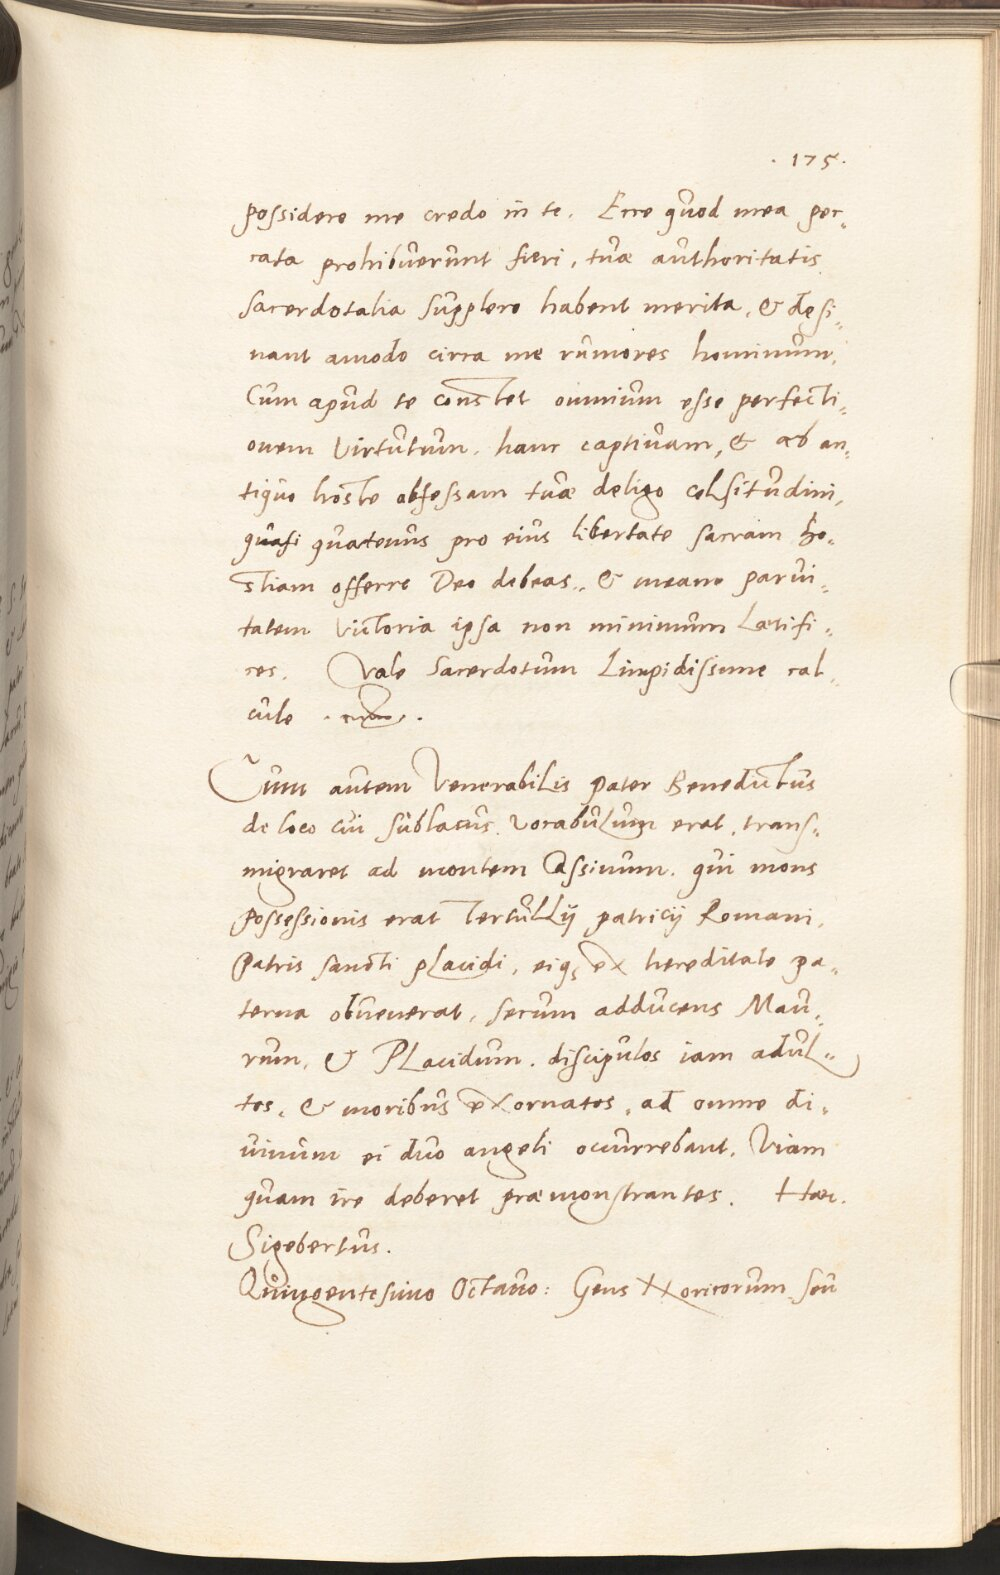 . 175 .
possidere me credo in te. Ecce quod mea pec-
cata prohibuerunt fieri, tuæ authoritatis
sacerdotalia supplere habent merita, & desi-
nant amodo circa me rumores hominum.
Cum apud te constet omnium esse perfecti-
onem Virtutum, hanc captivam, & ab an-
tiquo hoste obsessam tuæ deligo celsitudini,
quasi quatenus pro eius libertate sacram ho-
stiam offerre Deo debeas, & meam parvi-
tatem victoria ipsa non minimum Lætifi-
ces. Vale Sacerdotum Limpidissime cal-
cule
Cum autem Venerabilis pater Benedictus
de loco cui sublacus vocabulum erat, trans-
migraret ad montem Cassinum, qui mons
possessionis erat Tertullij patricij Romani,
Patris sancti placidi, eiq; ex hereditate pa-
terna obvenerat, secum adducens Mau-
rum, & PLacidum, discipulos iam adul-
tos, & moribus exornatos, ad omne di-
uinum ei duo angeli ocurrebant, Viam
quam ire deberet præmonstrantes. Hæc.
Sigebertus.
Quingentesimo Octavo: Gens seu